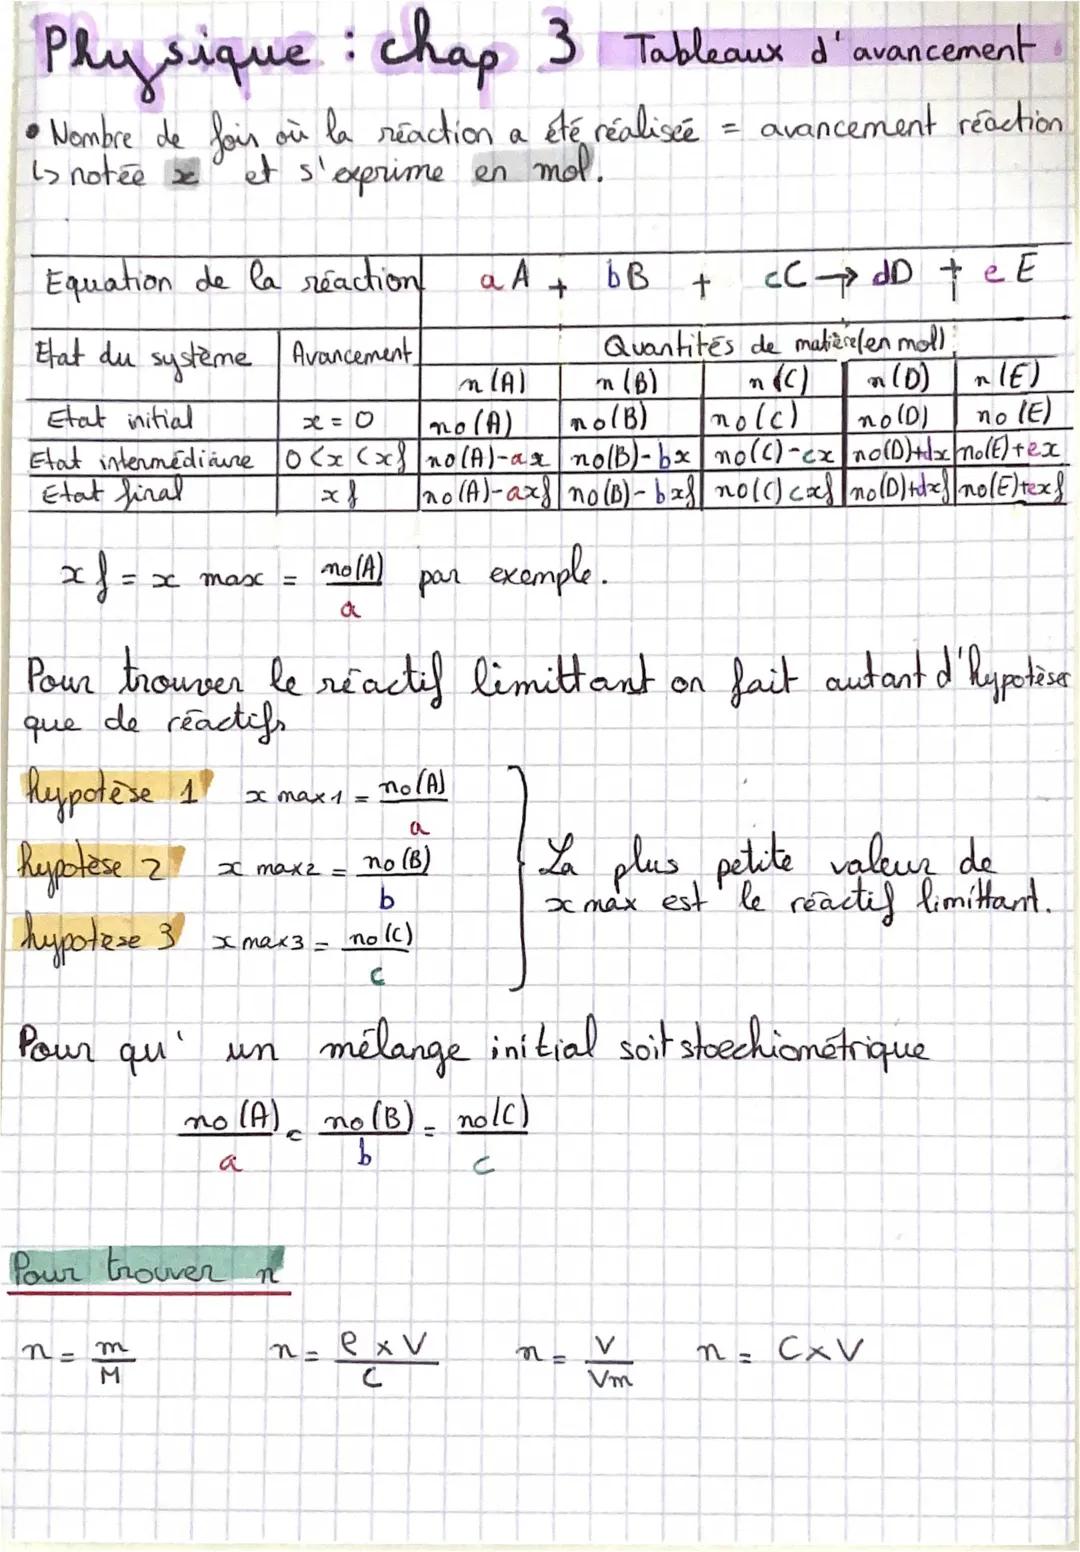 Physique : chap 3 Tableaux d'avancement
• Nombre de fois où la réaction a été réalisée = avancement réaction
↳ notée x et s'exprime en mol.
Equation de la réaction aA + bB + cC → dD + eE
Etat du système Avancement Quantités de matière (en mol):
n(A) n(B) n(C) n(D) n(E)
Etat initial x = 0 no(A) no(B) no(C) no(D) no(E)
Etat intermédiaire 0<x<xf no(A)-ax no(B)-bx no(C)-cx no(D)+dx no(E)+ex
Etat final xf no(A)-axf no(B)-bxf no(C) cxf no(D)+dxf no(E)+exf
xf = x max = no(A)/a par exemple.
Pour trouver le réactif limittant on fait autant d'hypotèses
que de réactifs
hypotèse 1 x max1 = no(A)/a
hypotèse 2 x max2 = no(B)/b
hypotèse 3 x max3 = no(C)/c
La plus petite valeur de
x max est le réactif limittant.
Pour qu' un mélange initial soit stoechiométrique
no(A)/a = no(B)/b = no(C)/c
Pour trouver n
n = m/M n = ρ x V/C n = V/Vm n = C x V